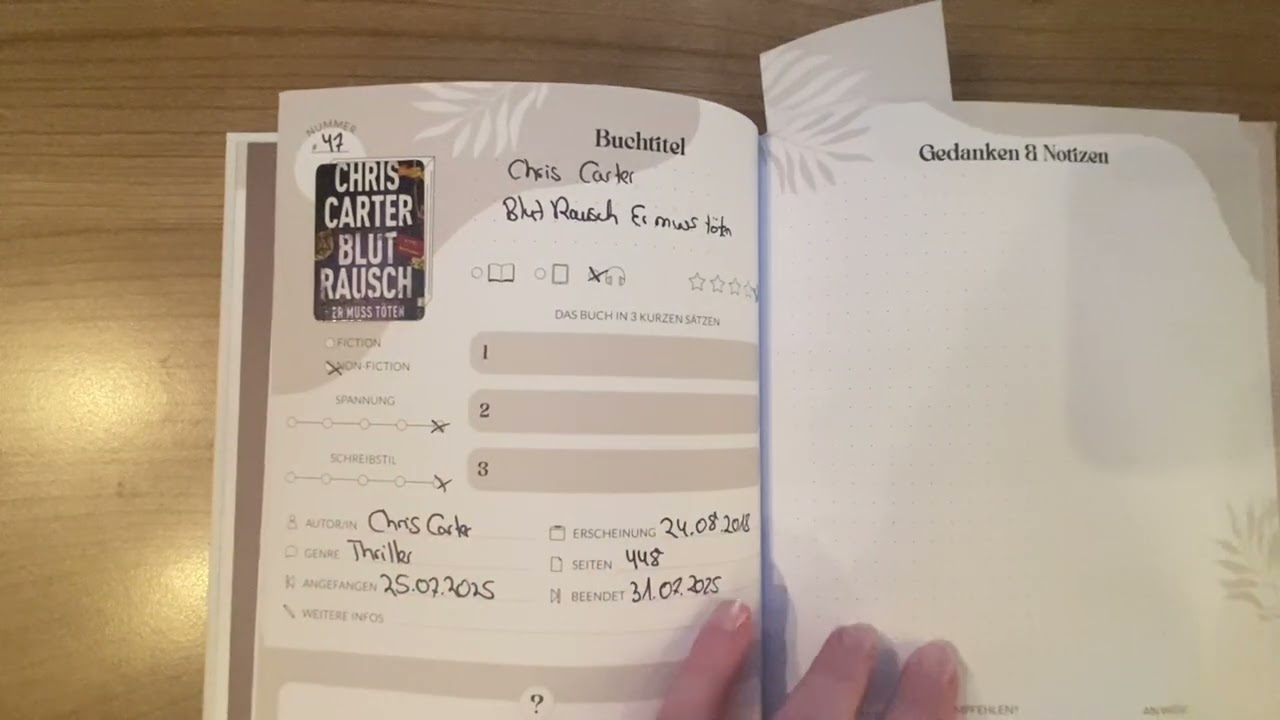 NUMMER
# 47
CHRIS
CARTER
BLUT
RAUSCH
ER MUSS TÖTEN
Buchtitel
Chris Carter
Blut Rausch Er muss töten
DAS BUCH IN 3 KURZEN SÄTZEN
FICTION
NON-FICTION
1
SPANNUNG
2
SCHREIBSTIL
3
AUTOR/IN Chris Carter
ERSCHEINUNG 24.08.2018
GENRE Thriller
SEITEN 448
ANGEFANGEN 25.07.2025
BEENDET 31.07.2025
WEITERE INFOS
?
Gedanken & Notizen